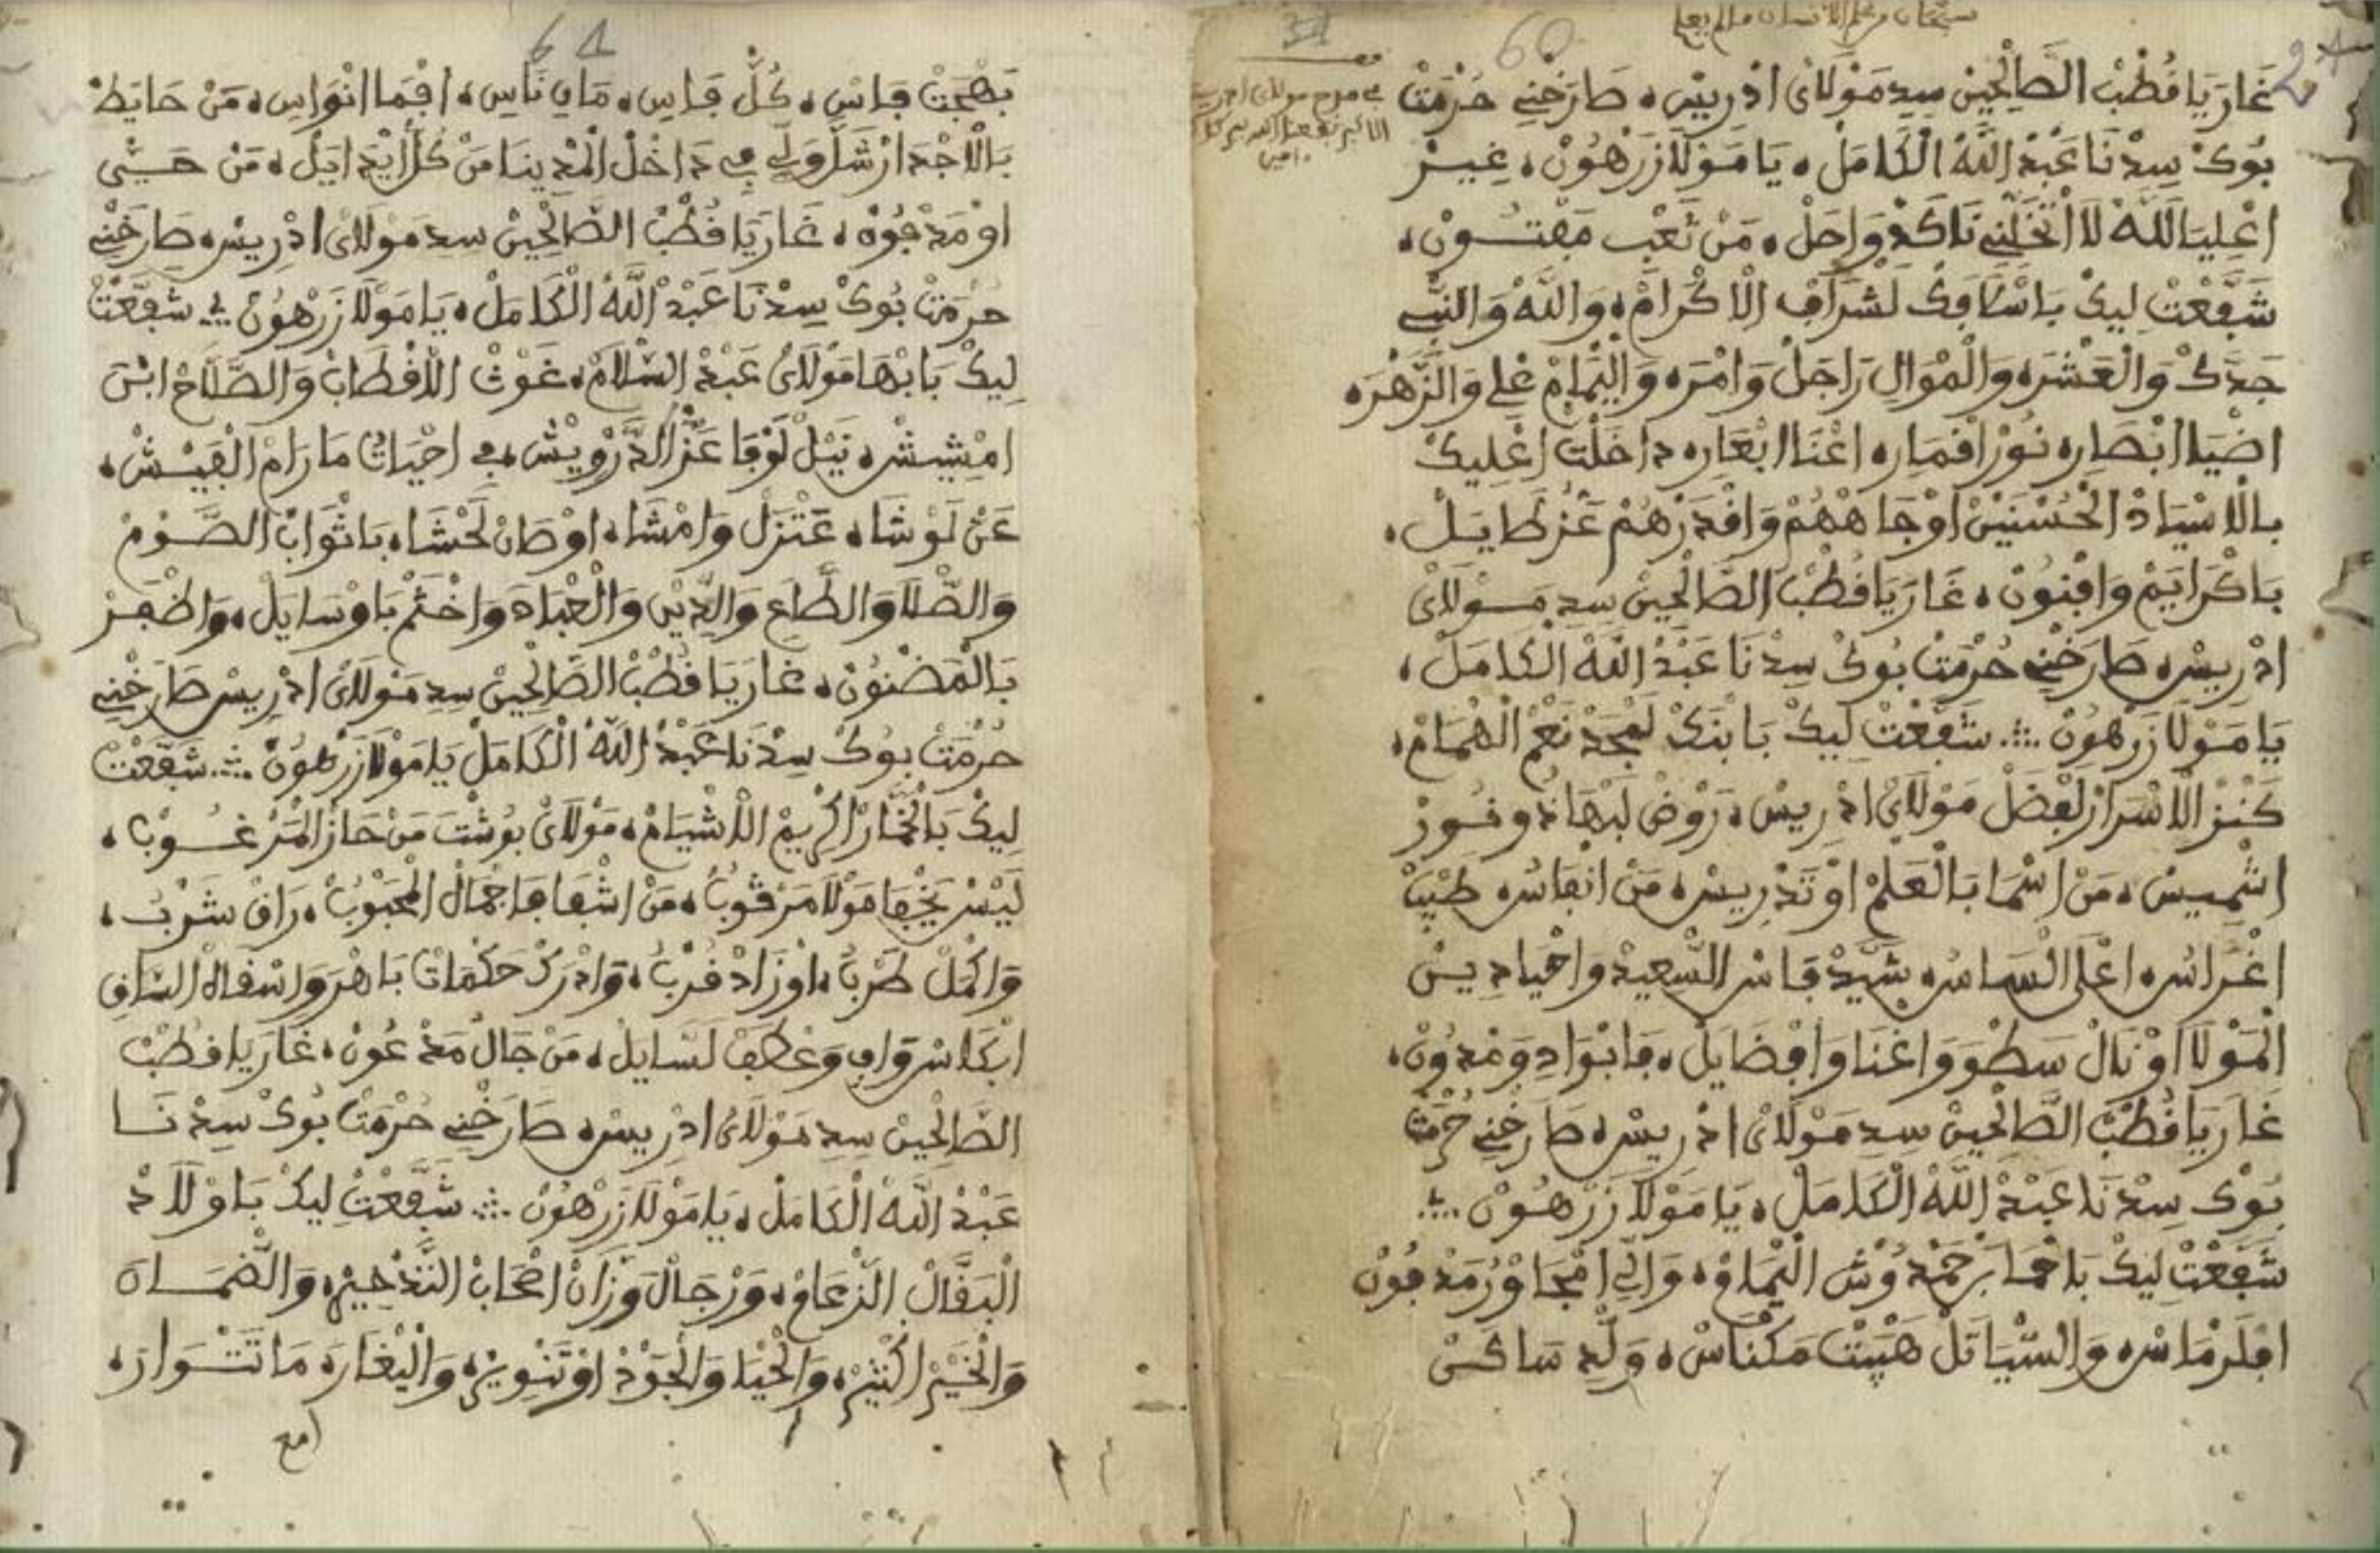 سبحان من علم الإنسان ما لم يعلم
60
غَارَ يَا قُطْبْ الصَّالْحِينْ سِيدِ مَوْلَايْ ادْرِيسْ، صَارَخْنِي حُرْمَتْ
بُوكْ سِيدْنَا عَبْدْ اللَّهْ الْكَامَلْ، يَا مَوْلَا زَرْهُونْ، غِيرْ
اعْلِيَا لَلَّهْ لَا اتْخَلِّنِي نَاكَدْ وَاحَلْ، مَنْ تَعْبِ مَفْتُونْ،
شَفَّعْتْ لِيكْ بَاسْلَافَكْ لَشْرَافِ الْاكْرَامْ، وَاللَّهْ وَالنَّبِي
جَدَّكْ وَالْعَشْرَه وَالْمْوَالِ رَاجَلْ وَامْرَه وَالِيمَامْ عْلِي وَالزَّهْرَه
اضْيَا ابْصَارِه نُورْ اقْمَارِه اغْنَا ابْعَارِه دَاخَلْتْ اعْلِيكْ
بالْاسْيَادْ الْحُسْنِيِّينْ اوْجَاهْهُمْ وَاقْدَرْهُمْ عَزْ طَايَلْ،
بَاكْرَايَمْ وَافْنُونْ، غَارَ يَا قُطْبْ الصَّالْحِينْ سِيدِ مَوْلَايْ
ادْرِيسْ، صَارَخْنِي حُرْمَتْ بُوكْ سِيدْنَا عَبْدْ اللَّهْ الْكَامَلْ،
يَا مَوْلَا زَرْهُونْ ∴ شَفَّعْتْ لِيكْ بَابْنَكْ لَمْجَدْ نَعْمْ الْهُمَامْ،
كَنْزْ الْاسْرَارْ لَفْضَلْ مَوْلَايْ ادْرِيسْ، رَوْضْ لَبْهَا نُه وفُوزْ
اشْمِيسْ، مَنْ اسْمَا بَالْعَلْمْ اوْ تَدْرِيسْ، مَنْ انْفَاسُه طْيَبْ
اغْرَاسُه اعْلَى السَّمَا سُه شَيَّدْ فَاسْ السَّعِيدْ وَاحْيَا دِيسْ
الْمَوْلَا اوْ نَالْ سَطْوَ وَاغْنَا وَافْضَايَلْ، فَابْوَادِ وَمْدُونْ،
غَارَ يَا قُطْبْ الصَّالْحِينْ سِيدِ مَوْلَايْ ادْرِيسْ، صَارَخْنِي حُرْمَتْ
بُوكْ سِيدْنَا عَبْدْ اللَّهْ الْكَامَلْ، يَا مَوْلَا زَرْهُونْ ∴
شَفَّعْتْ لِيكْ بَاحْمَا بَنْ حَمْدُوشْ الْيَمَامْ، وَالِّي امْجَاوْرُ مَدْفُونْ
افْلَرْمَاسْ، وَالشِّيَا تَلْ هَيْبَتْ مَكْنَاسْ، وَلِّد سَاكَنْ
61
بَهْجَتْ فَاسِ، كُلْ فَاسِ، مَا بِ نَاسِ، اقْمَا انْوَاسِ، مَنْ حَايَطْ
بَالْاجْدَارْ شَلَّ وَلِي في دَاخْلْ الْمْدِينَا مَنْ كُلْ ايْدَايَلْ، مَنْ حَيِّ
اوْ مَدْفُونْ، غَارَ يَا قُطْبْ الصَّالْحِينْ سِيدِ مَوْلَايْ ادْرِيسْ، صَارَخْنِي
حُرْمَتْ بُوكْ سِيدْنَا عَبْدْ اللَّهْ الْكَامَلْ، يَا مَوْلَا زَرْهُونْ ∴ شَفَّعْتْ
لِيكْ بَابْهَا مَوْلَايْ عَبْدْ السَّلَامْ، غَوْثْ الْاقْطَابْ وَالصَّلَّاحْ ابْنَ
امْشِيشْ، نَيْلْ لَوْفَا عَزْ الدَّرْوِيشْ، في احْيَاتُ مَا رَامْ الْفَيْشْ،
عَنْ لَوْشَاه عَتْزَلْ وَامْشَاه اوْصَانْ لَحْشَاه بَاثْوَابْ الصَّوْمْ
وَالصْلَا وَالطَّاعِ وَالدِّينْ وَالْعْبَادَه وَاخْتَمْ بَاوْسَايَلْ، وَاظْفَرْ
بَالْمَضْنُونْ، غَارَ يَا قُطْبْ الصَّالْحِينْ سِيدِ مَوْلَايْ ادْرِيسْ صَارَخْنِي
حُرْمَتْ بُوكْ سِيدْنَا عَبْدْ اللَّهْ الْكَامَلْ يَا مَوْلَا زَرْهُونْ ∴ شَفَّعْتْ
لِيكْ بَالْمُخْتَارْ اكْرِيمْ الْاشْيَامْ، مَوْلَايْ بُوشْتَ مَنْ حَازْ الْمَرْغُوبْ،
لَيْسْ يَخْفَا مَوْلَا مَرْقُوبْ، مَنْ اشْفَاهَا جْمَالْ الْمَحْبُوبْ، رَاقْ شَرْبُ،
وَاكْمَلْ طَرْبُ، اوْ زَادْ قُرْبُ، وَادْرَكْ حَكْمَاتْ بَاهْرَ وَاسْقَاهْ السَّاقِ
ابْكَاسْ وَافِ وَعْطَفْ لَسَّايَلْ، مَنْ جَالْ مَدْعُونْ، غَارَ يَا قُطْبْ
الصَّالْحِينْ سِيدِ مَوْلَايْ ادْرِيسْ، صَارَخْنِي حُرْمَتْ بُوكْ سِيدْنَا
عَبْدْ اللَّهْ الْكَامَلْ، يَا مَوْلَا زَرْهُونْ ∴ شَفَّعْتْ لِيكْ بَاوْلَادْ
الْبَقَّالْ الزْعَامْ، وَرْجَالْ وَزَانْ اصْحَابْ التَّدْخِيرْ، وَالضْمَانَه
وَالْخَيْرْ الْكْثِيرْ، وَالْحْيَا وَالْجُودْ اوْ تَنْوِيرْ، وَالْيغَارَه مَا تَتْوَارَه
امع